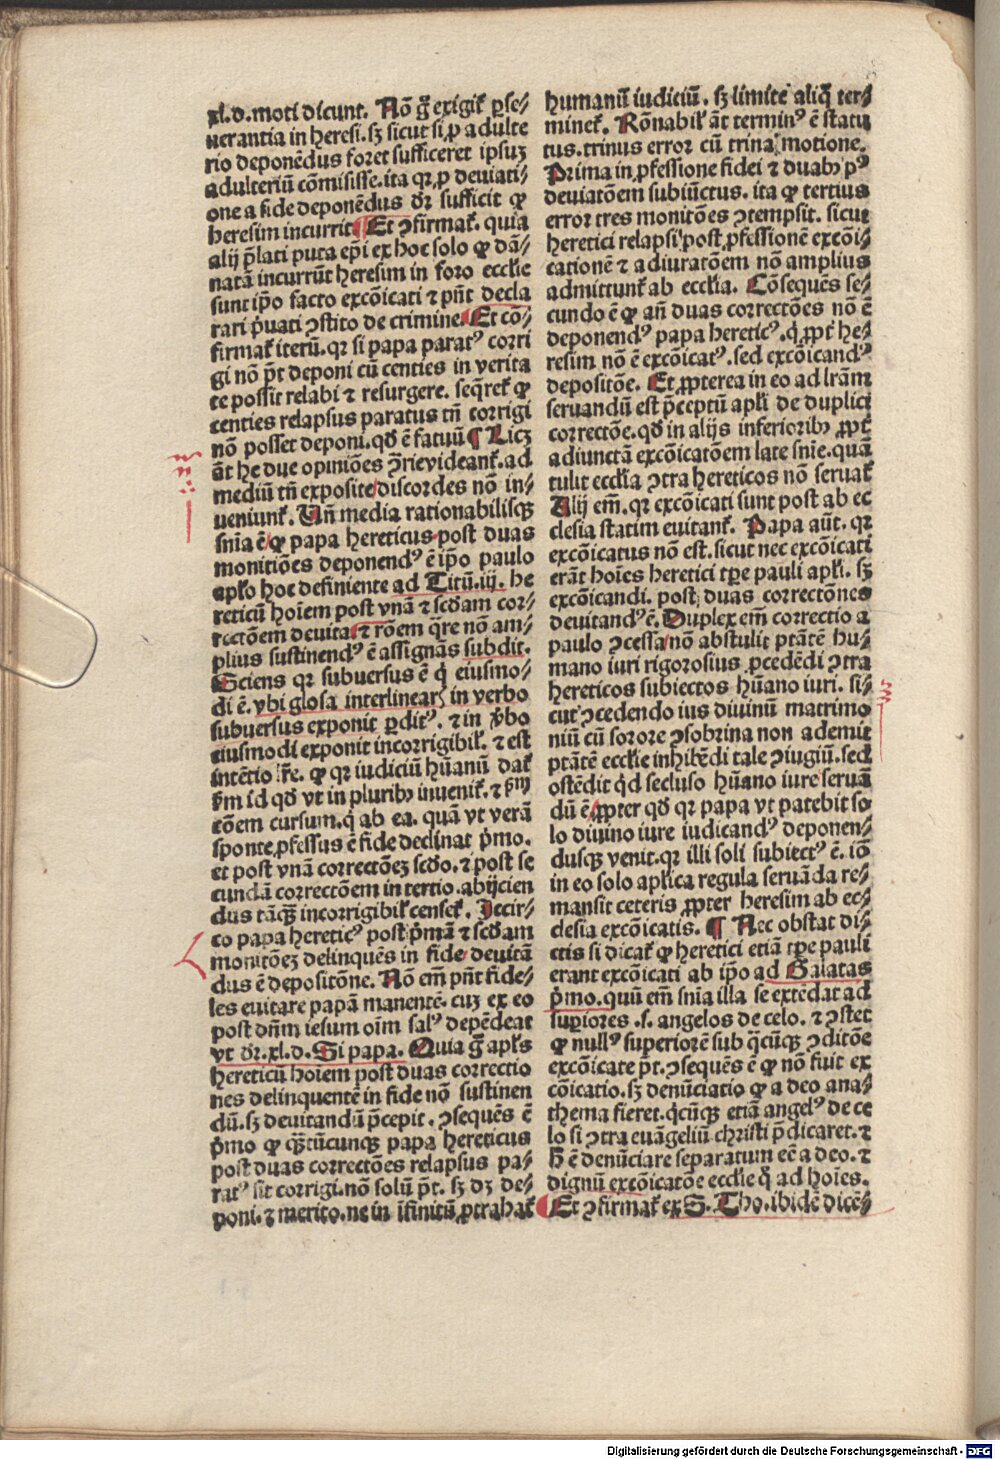 xl.d.moti dicunt. Nō g̃ exigit᷑ ꝑse⸗
uerantia in heresi.sꝫ sicut si ꝓ adulte
rio deponēdus foret sufficeret ipsuꝫ
adulteriū cōmisisse.ita qꝛ ꝓ deuiati⸗
one a fide deponēdus dr̄ sufficit ꝙ
heresim incurrit ¶ Et ꝯfirmat᷑. quia
alij p̄lati puta ep̄i ex hoc solo ꝙ dā⸗
natā incurrūt heresim in foro eccl̄ie
sunt ip̄o facto excōicati ⁊ pn̄t decla
rari p̄uati ꝯstito de crimine. Et cō⸗
firmat᷑ iterū. qꝛ si papa parat⁹ corri
gi nō pt̄ deponi cū centies in verita
te possit relabi ⁊ resurgere. seq̄ret᷑ ꝙ
centies relapsus paratus tn̄ corrigi
nō posset deponi.qd̄ ē fatuū ¶ Licꝫ
āt he due opiniōes ꝯ̄rie videant᷑.ad
mediū tn̄ exposite discordes nō in⸗
ueniunt᷑. Un̄ media rationabilisqꝫ
sn̄ia ē ꝙ papa hereticus post duas
monitiōes deponend⁹ ē ip̄o paulo
apl̄o hoc definiente ad Titū.iij. he
reticū hoīem post vnā ⁊ scd̄am cor⸗
rectōem deuita ⁊ rōem q̄re nō am⸗
plius sustinend⁹ ē assignās subdit.
Sciens qꝛ subuersus ē q̇ eiusmo⸗
di ē. vbi glosa interlinearꝭ in verbo
subuersus exponit ꝑdit⁹. ⁊ in v̄bo
eiusmodi exponit incorrigibil̄. ⁊ est
intētio l̄r̄e. ꝙ qꝛ iudiciū hūanū dat᷑
ẜm id qd̄ vt in pluribꝰ inuenit᷑. ⁊ ẜm
cōem cursum.q̇ ab ea. quā vt verā
sponte ꝓfessus ē fide declinat p̄mo.
et post vnā correctōeꝫ scd̄o. ⁊ post se
cundā correctōem in tertio.abijcien
dus tāqꝫ incorrigibil̄ censet᷑. Iccir⸗
co papa heretic⁹ post p̄mā ⁊ scd̄am
monitōeꝫ delinquēs in fide deuitā
dus ē depositōne. Nō em̄ pn̄t fide⸗
les euitare papā manentē. cuꝫ ex eo
post dn̄m iesum oīm sal⁹ depēdeat
vt dr̄.xl.d.Si papa. Quia g̃ apl̄s
hereticū hoīem post duas correctio
nes delinquentē in fide nō sustinen
dū.sꝫ deuitandū p̄cepit. ꝯsequēs ē
p̄mo ꝙ qȝtūcunqꝫ papa hereticus
post duas correctōes relapsus pa⸗
rat⁹ sit corrigi.nō solū pt̄. sꝫ dꝫ de⸗
poni.⁊ merito.ne in īfinitū ꝓtrahat᷑
humanū iudiciū. sꝫ limite aliq̄ ter⸗
minet᷑. Rōnabil̄ āt termin⁹ ē statu
tus.trinus error cū trina motione.
Prima in ꝓfessione fidei ⁊ duabꝰ p⁹
deuiatōem subiūctus. ita ꝙ tertius
error tres monitōes ꝯtempsit. sicut
heretici relapsi post ꝓfessionē excōi⸗
cationē ⁊ adiuratōem nō amplius
admittunt᷑ ab eccl̄ia. Cōsequēs se⸗
cundo ē ꝙ an̄ duas correctōes nō ē
deponend⁹ papa heretic⁹.q̇ ꝓpt̄ he⸗
resim nō ē excōicat⁹. sed excōicand⁹
depositōe. Et ꝓpterea in eo ad lr̄am
seruandū est p̄ceptū apl̄i de duplici
correctōe.qd̄ in alijs inferioribꝰ ꝓpt̄
adiunctā excōicatōem late sn̄ie.quā
tulit eccl̄ia ꝯtra hereticos nō seruat᷑
Alij em̄. qꝛ excōicati sunt post ab ec
clesia statim euitant᷑. Papa aūt. qꝛ
excōicatus nō est.sicut nec excōicati
erāt hoīes heretici tꝑe pauli apl̄i. sꝫ
excōicandi. post duas correctōnes
deuitand⁹ ē. Duplex em̄ correctio a
paulo ꝯcessa nō abstulit ptātē hu⸗
mano iuri rigorosius ꝓcedēdi ꝯtra
hereticos subiectos hūano iuri. si⸗
cut ꝯcedendo ius diuinū matrimo
niū cū sorore ꝯsobrina non ademit
ptātē eccl̄ie inhibēdi tale ꝯiugiū.sed
ostēdit q̇d secluso hūano iure seruā
dū ē. ꝓpter qd̄ qꝛ papa vt patebit so
lo diuino iure iudicand⁹ deponen⸗
dusqꝫ venit.qꝛ illi soli subiect⁹ ē. iō
in eo solo apl̄ica regula seruāda re⸗
mansit ceteris ꝓpter heresim ab ec⸗
clesia excōicatis. ¶ Nec obstat di⸗
ctis si dicat᷑ ꝙ heretici etiā tꝑe pauli
erant excōicati ab ip̄o ad Galatas
p̄mo.quū em̄ sn̄ia illa se extēdat ad
suꝑiores .s. angelos de celo. ⁊ ꝯstet
ꝙ null⁹ superiorē sub q̄cūqꝫ ꝯditōe
excōicare pt̄.ꝯsequēs ē ꝙ nō fuit ex
cōicatio.sꝫ denūciatio ꝙ a deo ana⸗
thema fieret.q̇cūqꝫ etiā angel⁹ de ce
lo si ꝯtra euāgeliū christi p̄dicaret.⁊
h̄ ē denūciare separatum eē a deo.⁊
dignū excōicatōe eccl̄ie q̊ ad hoīes.
¶ Et ꝯfirmat᷑ ex S. Tho.ibidē dicē⸗
Digitalisierung gefördert durch die Deutsche Forschungsgemeinschaft - DFG